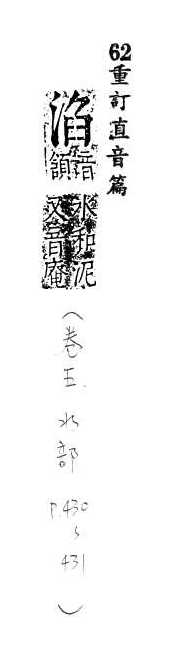 62重訂直音篇
淊音頷水和泥又音庵(卷五.水部 P.430~431)